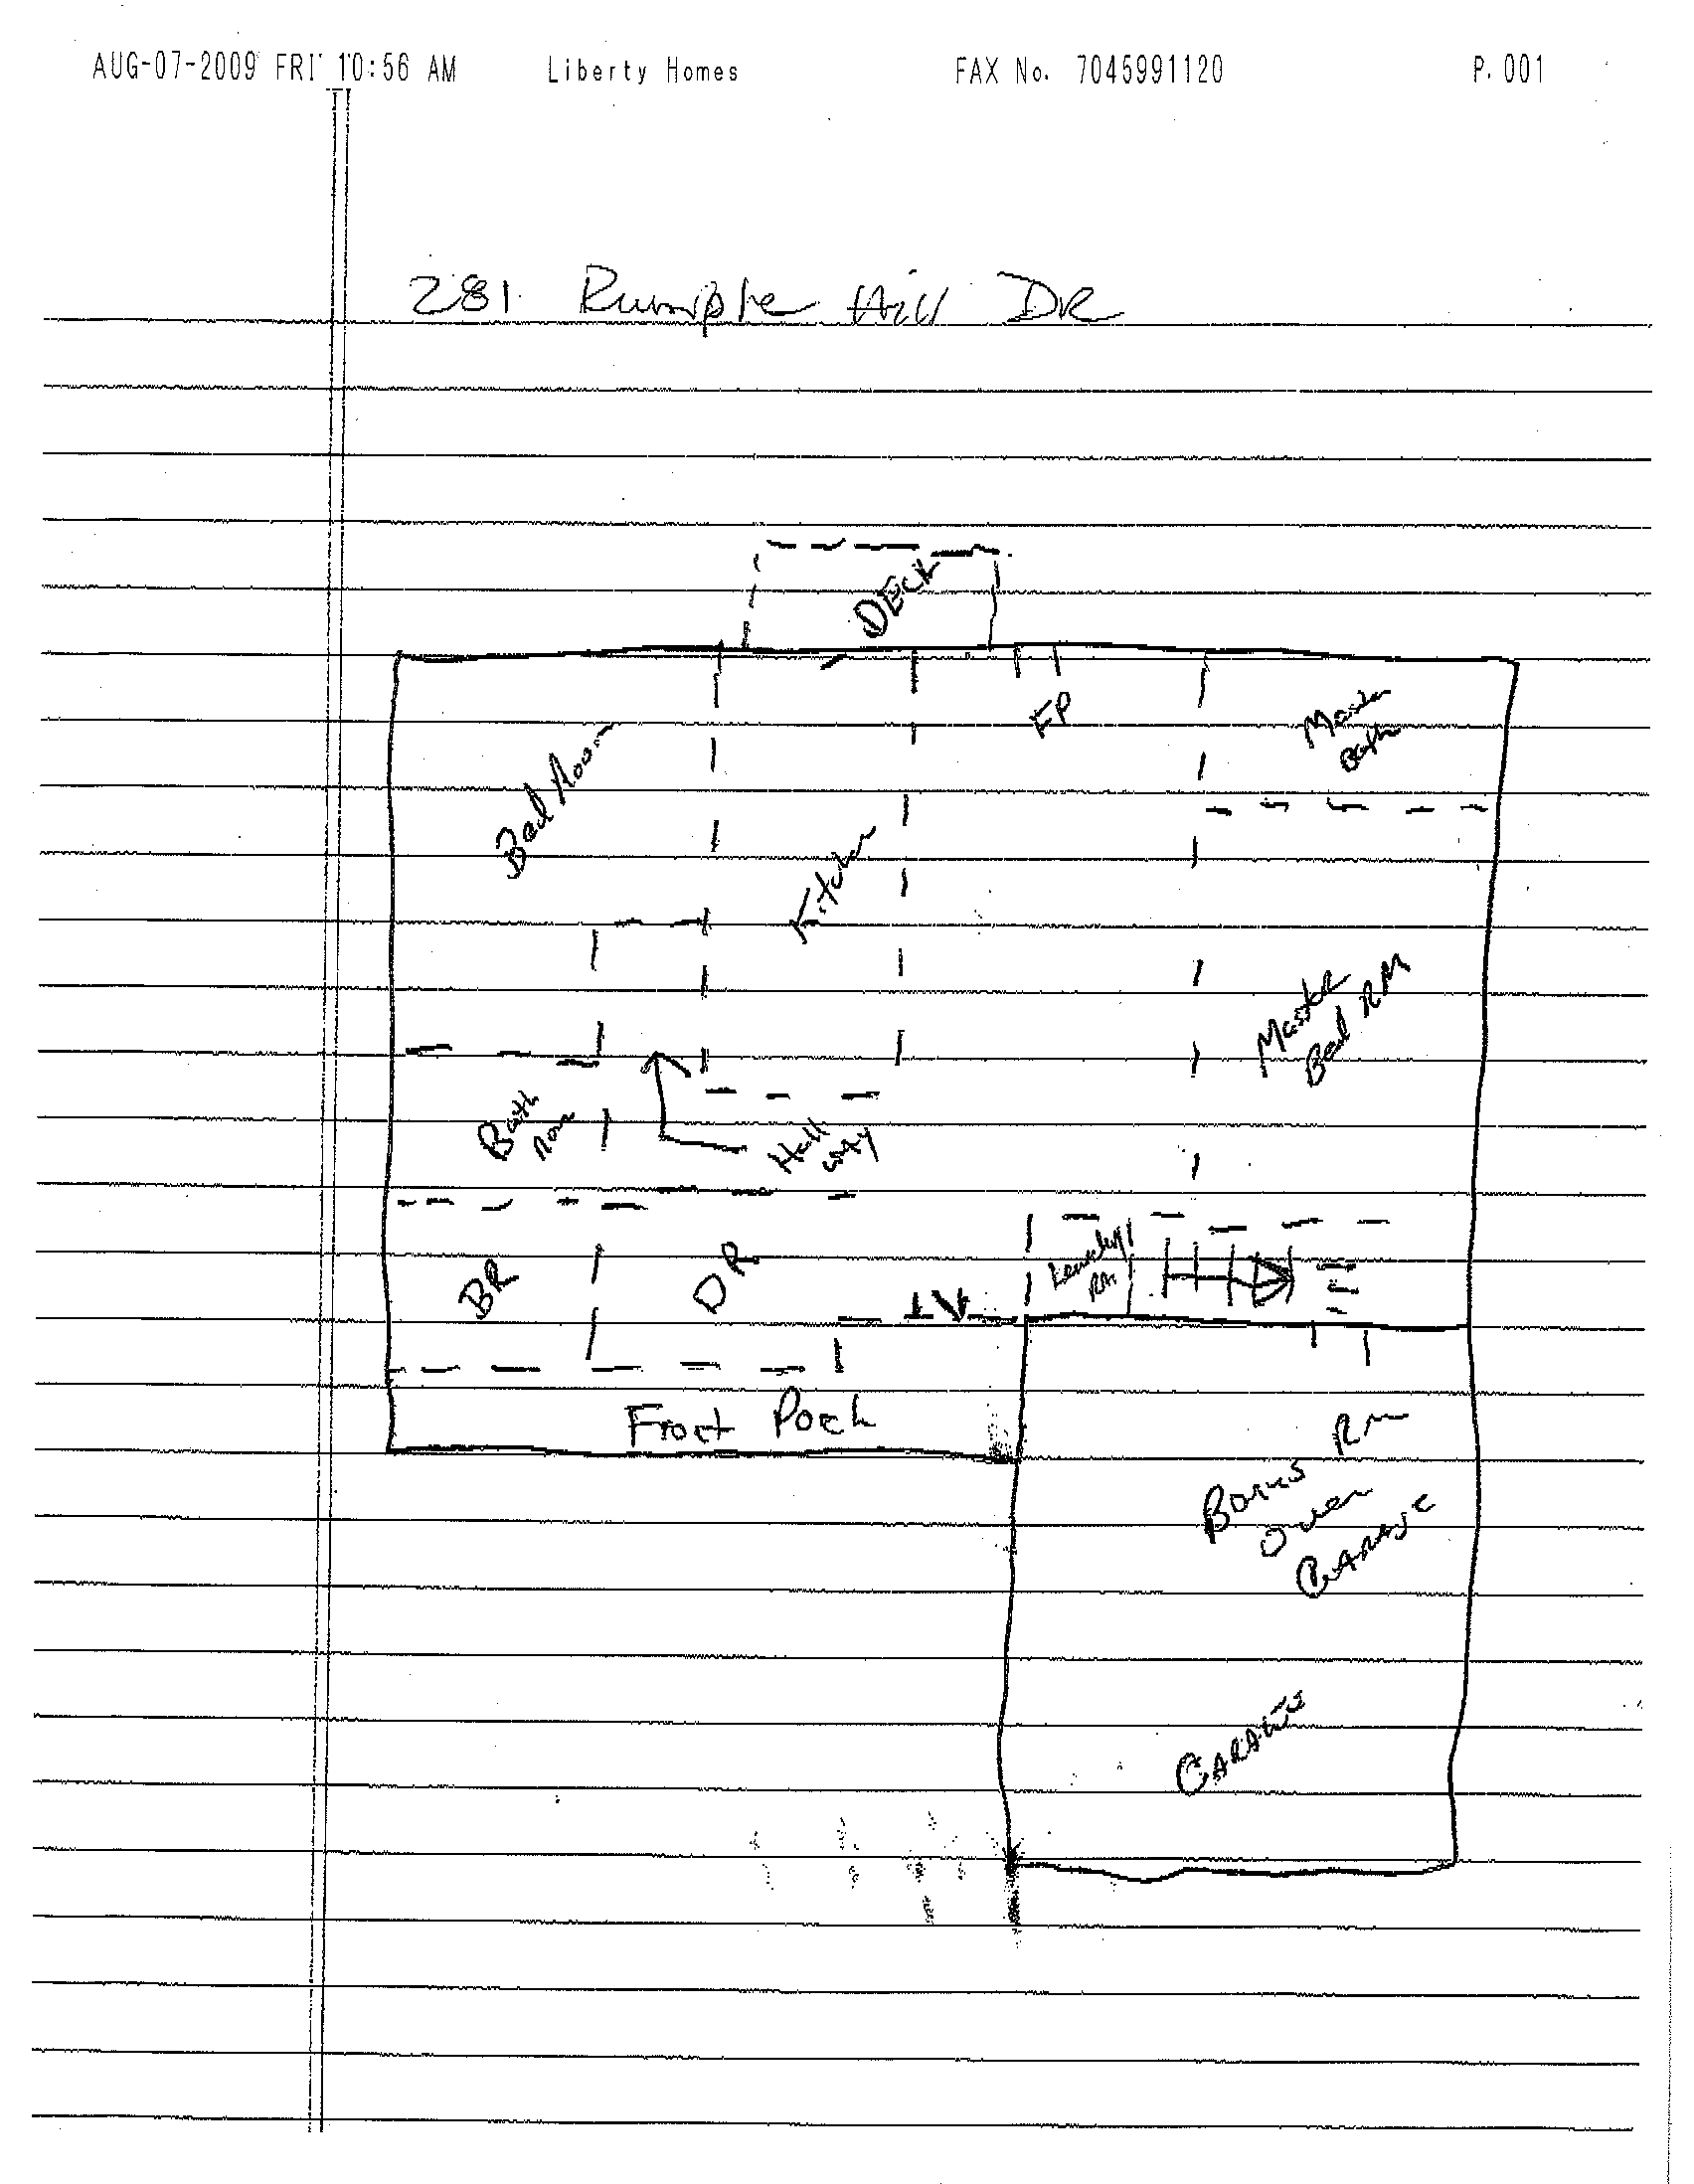 AUG-07-2009 FRI 10:56 AM Liberty Homes FAX No. 7045991120 P. 001
281 Rumple Hill DR
DECK
FP
Master
Bath
Bed Room
Kitchen
Master
Bed RM
Bath
Room
Hall
way
Laundry
RM
BR
DR
Front Poch
Bonus RM
over
GARAGE
GARAGE